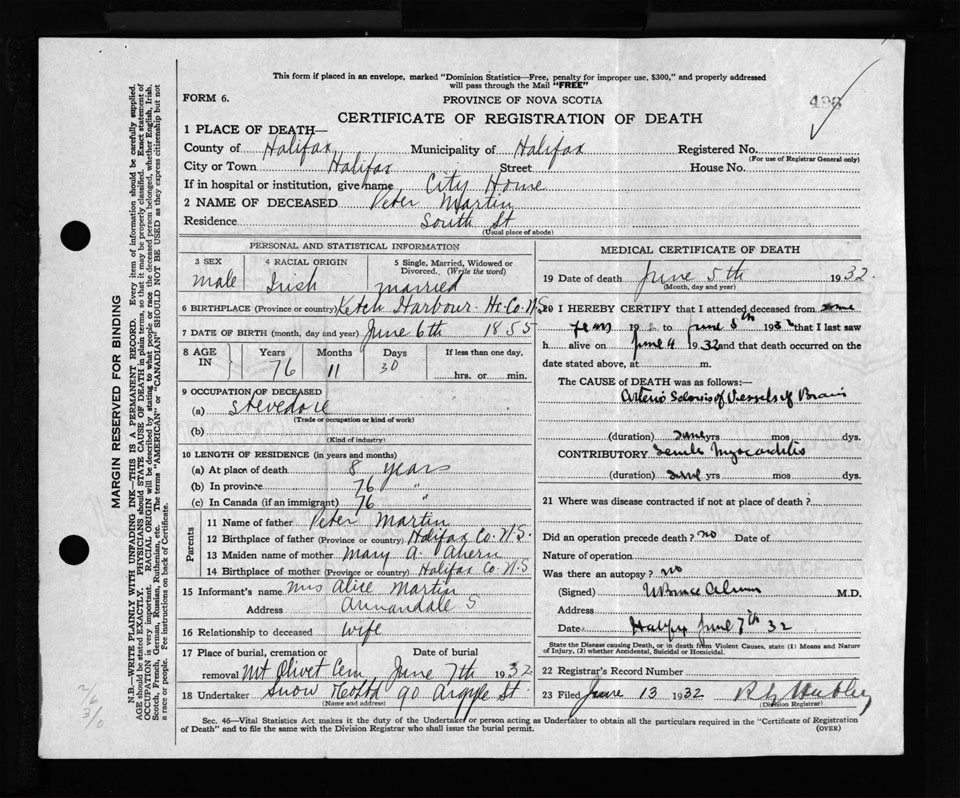 This form if placed in an envelope, marked "Dominion Statistics—Free, penalty for improper use, $300," and properly addressed
will pass through the Mail "FREE"
FORM 6.
PROVINCE OF NOVA SCOTIA
CERTIFICATE OF REGISTRATION OF DEATH
1 PLACE OF DEATH—
County of Halifax Municipality of Halifax Registered No.
(For use of Registrar General only)
City or Town Halifax Street House No.
If in hospital or institution, give name City Home
2 NAME OF DECEASED Peter Martin
Residence South St
(Usual place of abode)
PERSONAL AND STATISTICAL INFORMATION
3 SEX 4 RACIAL ORIGIN 5 Single, Married, Widowed or
Divorced. (Write the word)
male Irish married
6 BIRTHPLACE (Province or country) Ketch Harbour Hx. Co. N.S.
7 DATE OF BIRTH (month, day and year) June 6th 1855
8 AGE IN Years Months Days If less than one day,
76 11 30 hrs. or min.
9 OCCUPATION OF DECEASED
(a) Stevedore
(Trade or occupation or kind of work)
(b)
(Kind of industry)
10 LENGTH OF RESIDENCE (in years and months)
(a) At place of death 8 years
(b) In province 76 "
(c) In Canada (if an immigrant) 76 "
Parents
11 Name of father Peter Martin
12 Birthplace of father (Province or country) Halifax Co. N.S.
13 Maiden name of mother Mary A. Ahern
14 Birthplace of mother (Province or country) Halifax Co. N.S
15 Informant's name Mrs Alice Martin
Address Annandale S
16 Relationship to deceased Wife
17 Place of burial, cremation or Date of burial
removal Mt Olivet Cem June 7th 1932
18 Undertaker Snow &Co Ltd 90 Argyle St.
(Name and address)
MEDICAL CERTIFICATE OF DEATH
19 Date of death June 5th 1932.
(Month, day and year)
20 I HEREBY CERTIFY that I attended deceased from some
years 19 to June 5th 1932 that I last saw
h alive on June 4 1932 and that death occurred on the
date stated above, at m.
The CAUSE of DEATH was as follows:—
Arterio Sclerosis of Vessels of Brain
(duration) some yrs mos dys.
CONTRIBUTORY Senile Myocarditis
(duration) some yrs mos dys.
21 Where was disease contracted if not at place of death?
Did an operation precede death? no Date of
Nature of operation
Was there an autopsy? no
(Signed) M.D.
Address
Date Halifax June 7th 32
State the Disease causing Death, or in death from Violent Causes, state (1) Means and Nature
of Injury, (2) whether Accidental, Suicidal or Homicidal.
22 Registrar's Record Number
23 Filed June 13 1932
(Division Registrar)
Sec. 46—Vital Statistics Act makes it the duty of the Undertaker or person acting as Undertaker to obtain all the particulars required in the "Certificate of Registration
of Death" and to file the same with the Division Registrar who shall issue the burial permit.
(OVER)
MARGIN RESERVED FOR BINDING
N.B.—WRITE PLAINLY WITH UNFADING INK—THIS IS A PERMANENT RECORD. Every item of information should be carefully supplied.
AGE should be stated EXACTLY. PHYSICIANS should STATE CAUSE OF DEATH in plain terms, so that it may be properly classified. Exact statement of
OCCUPATION is very important. RACIAL ORIGIN will be described by stating to what people or race the deceased person belonged, whether English, Irish,
Scotch, French, German, Russian, Ruthenian, etc. The terms "AMERICAN" or "CANADIAN" SHOULD NOT BE USED as they express citizenship but not
a race or people. Fee instructions on back of Certificate.